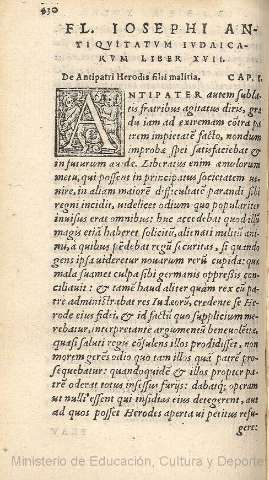 830
FL. IOSEPHI AN-
TIQVITATVM IVDAICA-
RVM LIBER XVII.
De Antipatri Herodis filii malitia. CAP. I.
ANTIPATER autem subla-
tis fratribus agitatus diris, gra
du iam ad extremam cōtra pa
trem impietatē facto, nondum
improbæ spei satisfaciebat
in futurum aude. Liberatus enim æmulorum
metu, qui possent in principatus societatem ue-
nire, in aliam maiorē difficultatē parandi sibi
regni incidit, uidelicet odium quo populariter
inuisus erat omnibus: huc accedebat quod illū
magis etiā haberet solicitū, alienati militū ani-
mi, a quibus pēdebat regū securitas, si quando
gens ipsa uideretur nouarum rerū cupida: quæ
mala suamet culpa sibi germanis oppressis con-
ciliauit: & tamē haud aliter quàm rex cū pa-
tre administrabat res Iudæorū, credente se He-
rode eius fidei, & id factū quo supplicium me-
rebatur, interpretante argumentū beneuolētiæ,
quasi saluti regis cōsulens illos prodidisset, non
morem gerēs odio quo tam illos quā patrē pro-
sequebatur: quandoquidē & illos propter pa-
trē oderat totus insessus furijs: dabatq; operam
ut nulli essent qui insidias eius detegerent, aut
ad quos posset Herodes aperta ui petitus refu-
gere:
Ministerio de Educación, Cultura y Deporte